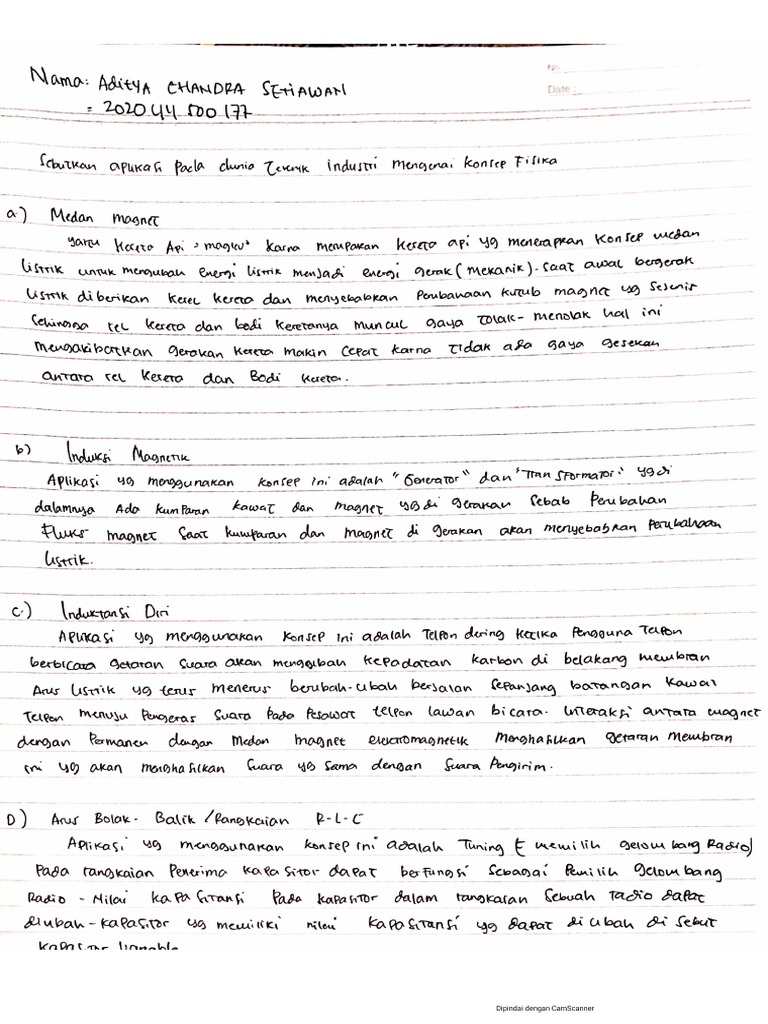 No.
Date:
Nama: Aditya CHANDRA SETIAWAN
: 202044500177
Sebutkan aplikasi pada dunia Teknik industri mengenai konsep Fisika
a) Medan magnet
yaitu kereta Api "maglev" karna merupakan kereta api yg menerapkan konsep medan
listrik untuk mengubah energi listrik menjadi energi gerak (mekanik). saat awal bergerak
listrik diberikan kerel kereta dan menyebabkan Perubahaan kutub magnet yg sejenis
sehingga rel kereta dan bodi keretanya muncul gaya tolak-menolak hal ini
mengakibatkan gerakan kereta makin cepat karna tidak ada gaya gesekan
antara rel kereta dan Bodi kereta.
b) Induksi Magnetik
Aplikasi yg menggunakan konsep ini adalah "Generator" dan "Transformator" yg di
dalamnya Ada kumparan kawat dan magnet yg di gerakan sebab Perubahan
Fluks magnet saat kumparan dan magnet di gerakan akan menyebabkan Perubahaan
listrik.
c.) Induktansi Diri
Aplikasi yg menggunakan konsep ini adalah Telpon dering ketika Pengguna Telpon
berbicara getaran suara akan mengubah kepadatan karbon di belakang membran
Arus listrik yg terus menerus berubah-ubah berjalan sepanjang batangan kawat
Telpon menuju Pengeras suara Pada Pesawat telpon lawan bicara. Interaksi antara magnet
dengan Permanen dengan Medan magnet elektromagnetik menghasilkan getaran membran
ini yg akan menghasilkan suara yg sama dengan suara Pengirim.
D) Arus Bolak-Balik /Rangkaian R-L-C
Aplikasi yg menggunakan konsep ini adalah Tuning ( memilih gelombang Radio)
Pada rangkaian Penerima kapasitor dapat berfungsi sebagai Pemilih gelombang
Radio - Nilai kapasitansi Pada kapasitor dalam rangkaian sebuah radio dapat
diubah-kapasitor yg memiliki nilai kapasitansi yg dapat di ubah di sebut
kapasitor Variable
Dipindai dengan CamScanner